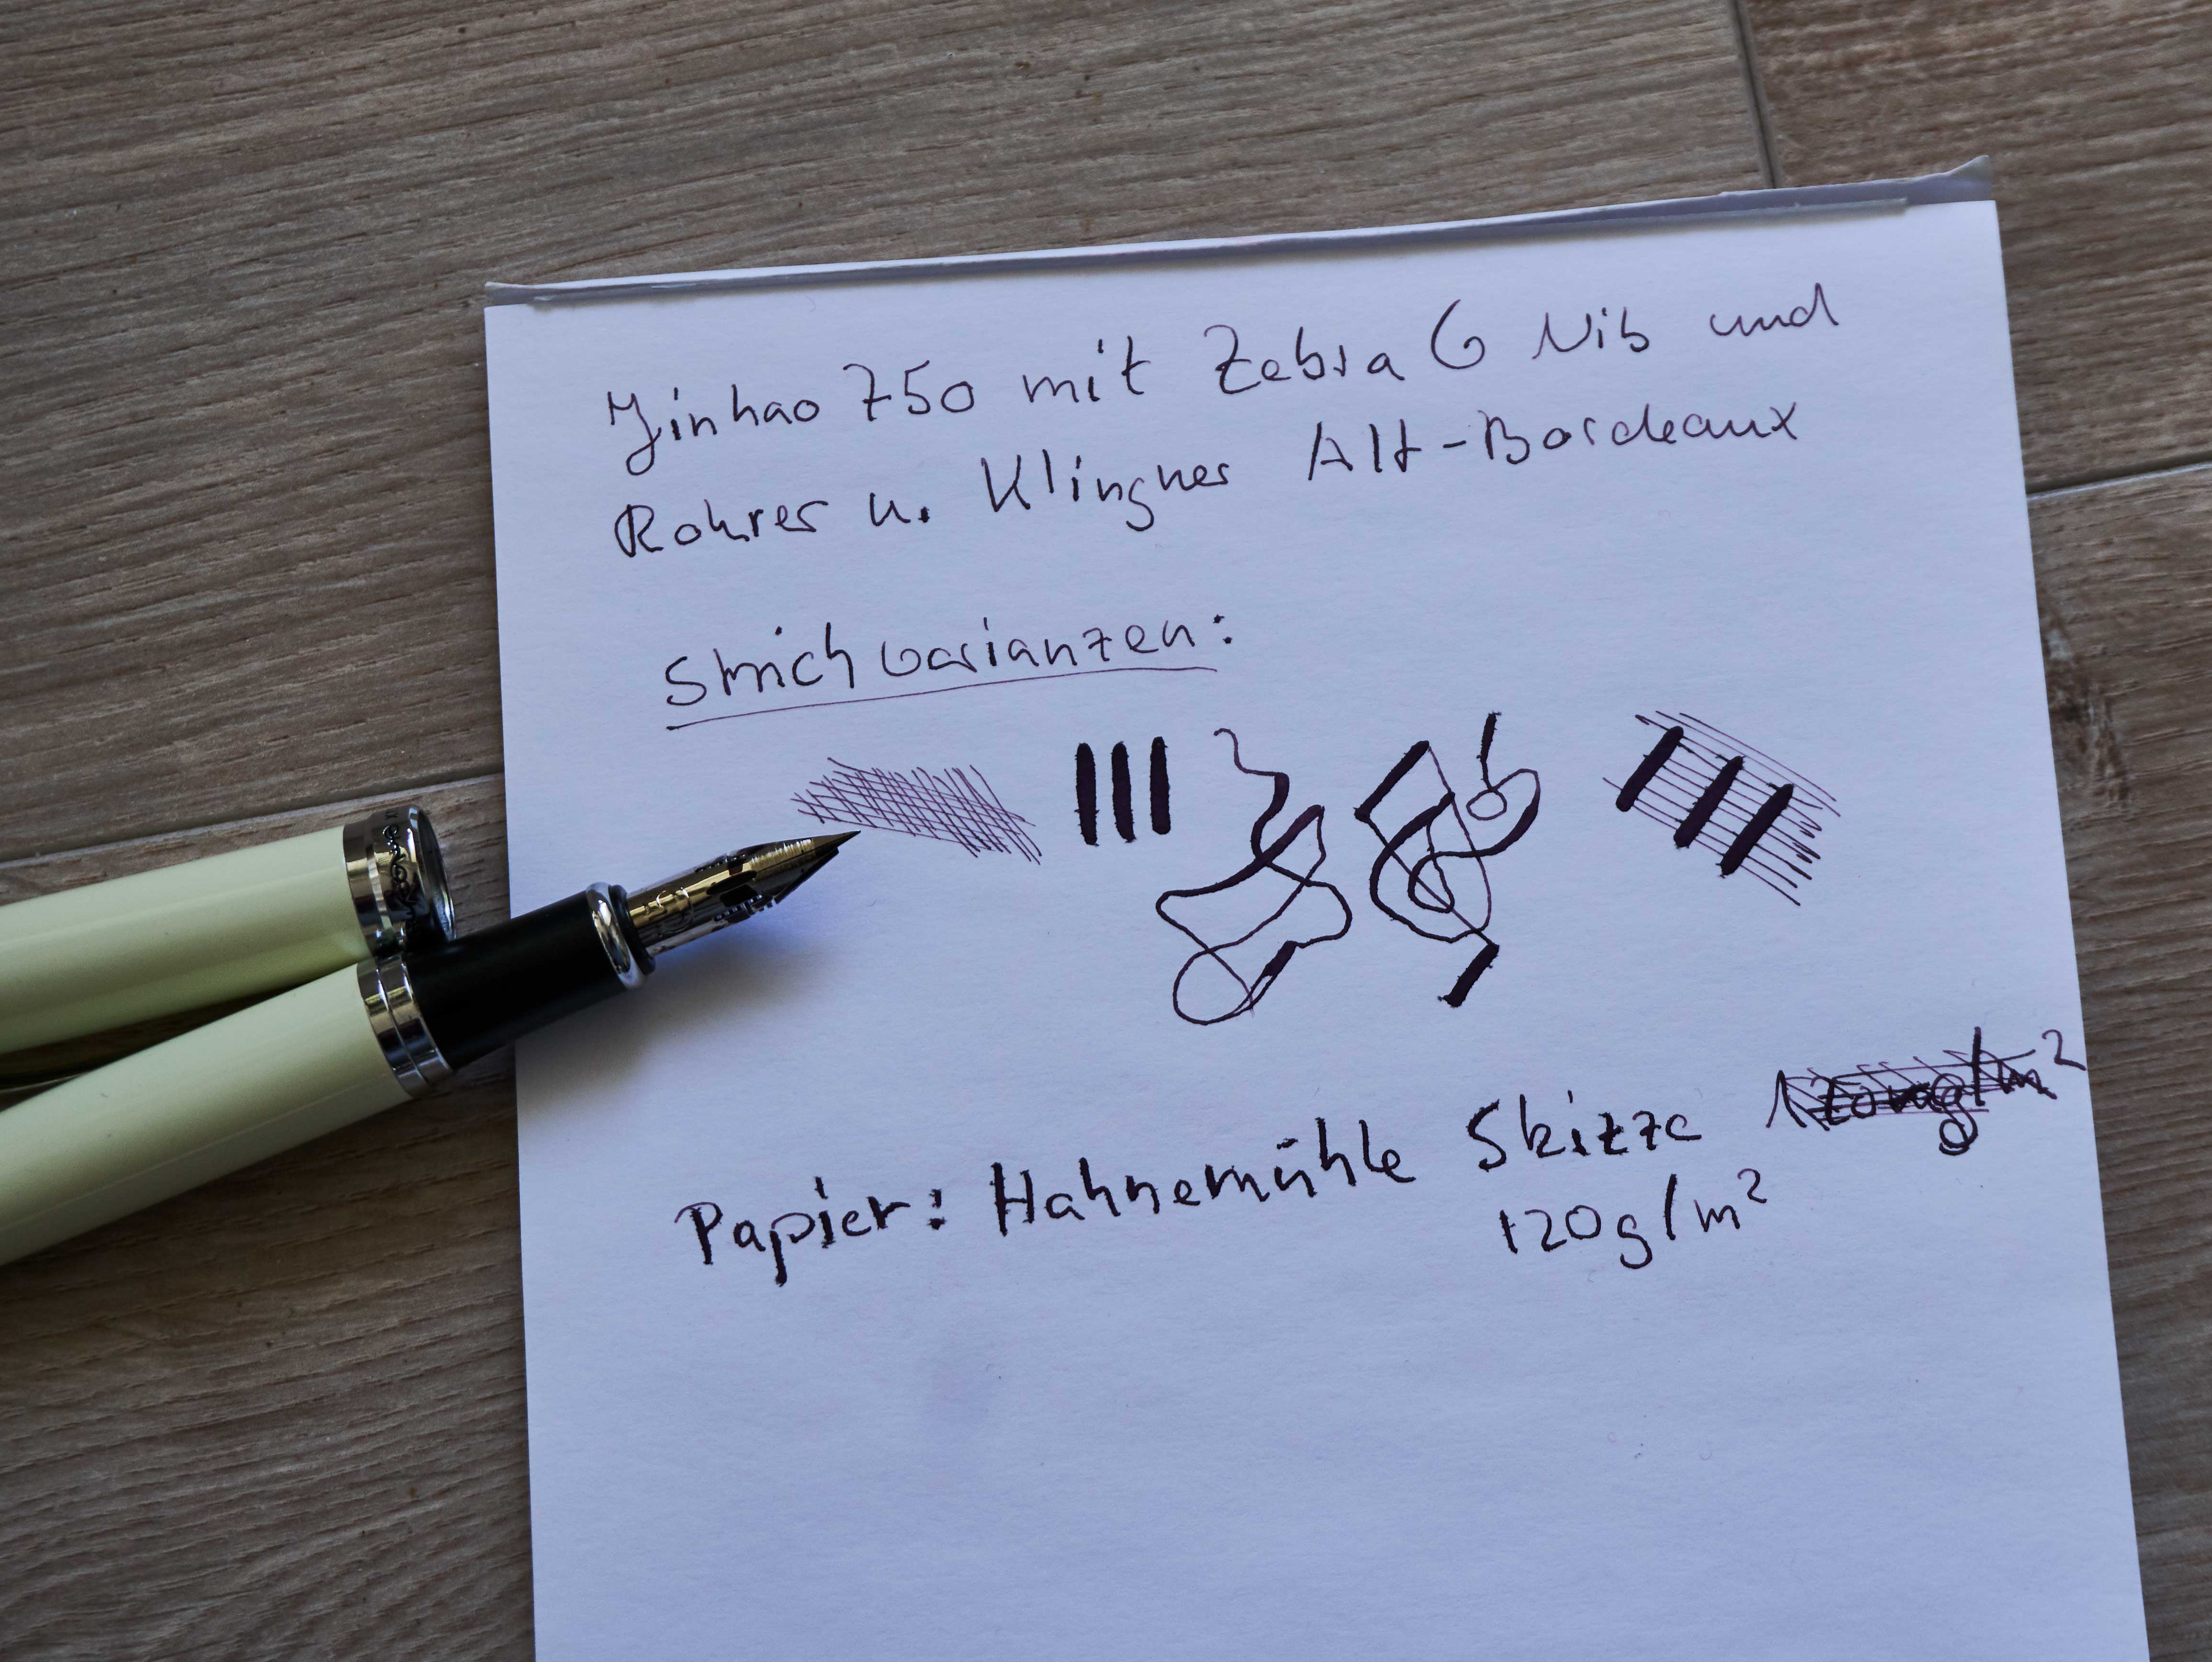 Jinhao 750 mit Zebra G Nib und
Rohrer u. Klingner Alt-Bordeaux
Strichvarianzen:
Papier: Hahnemühle Skizze
120g/m²